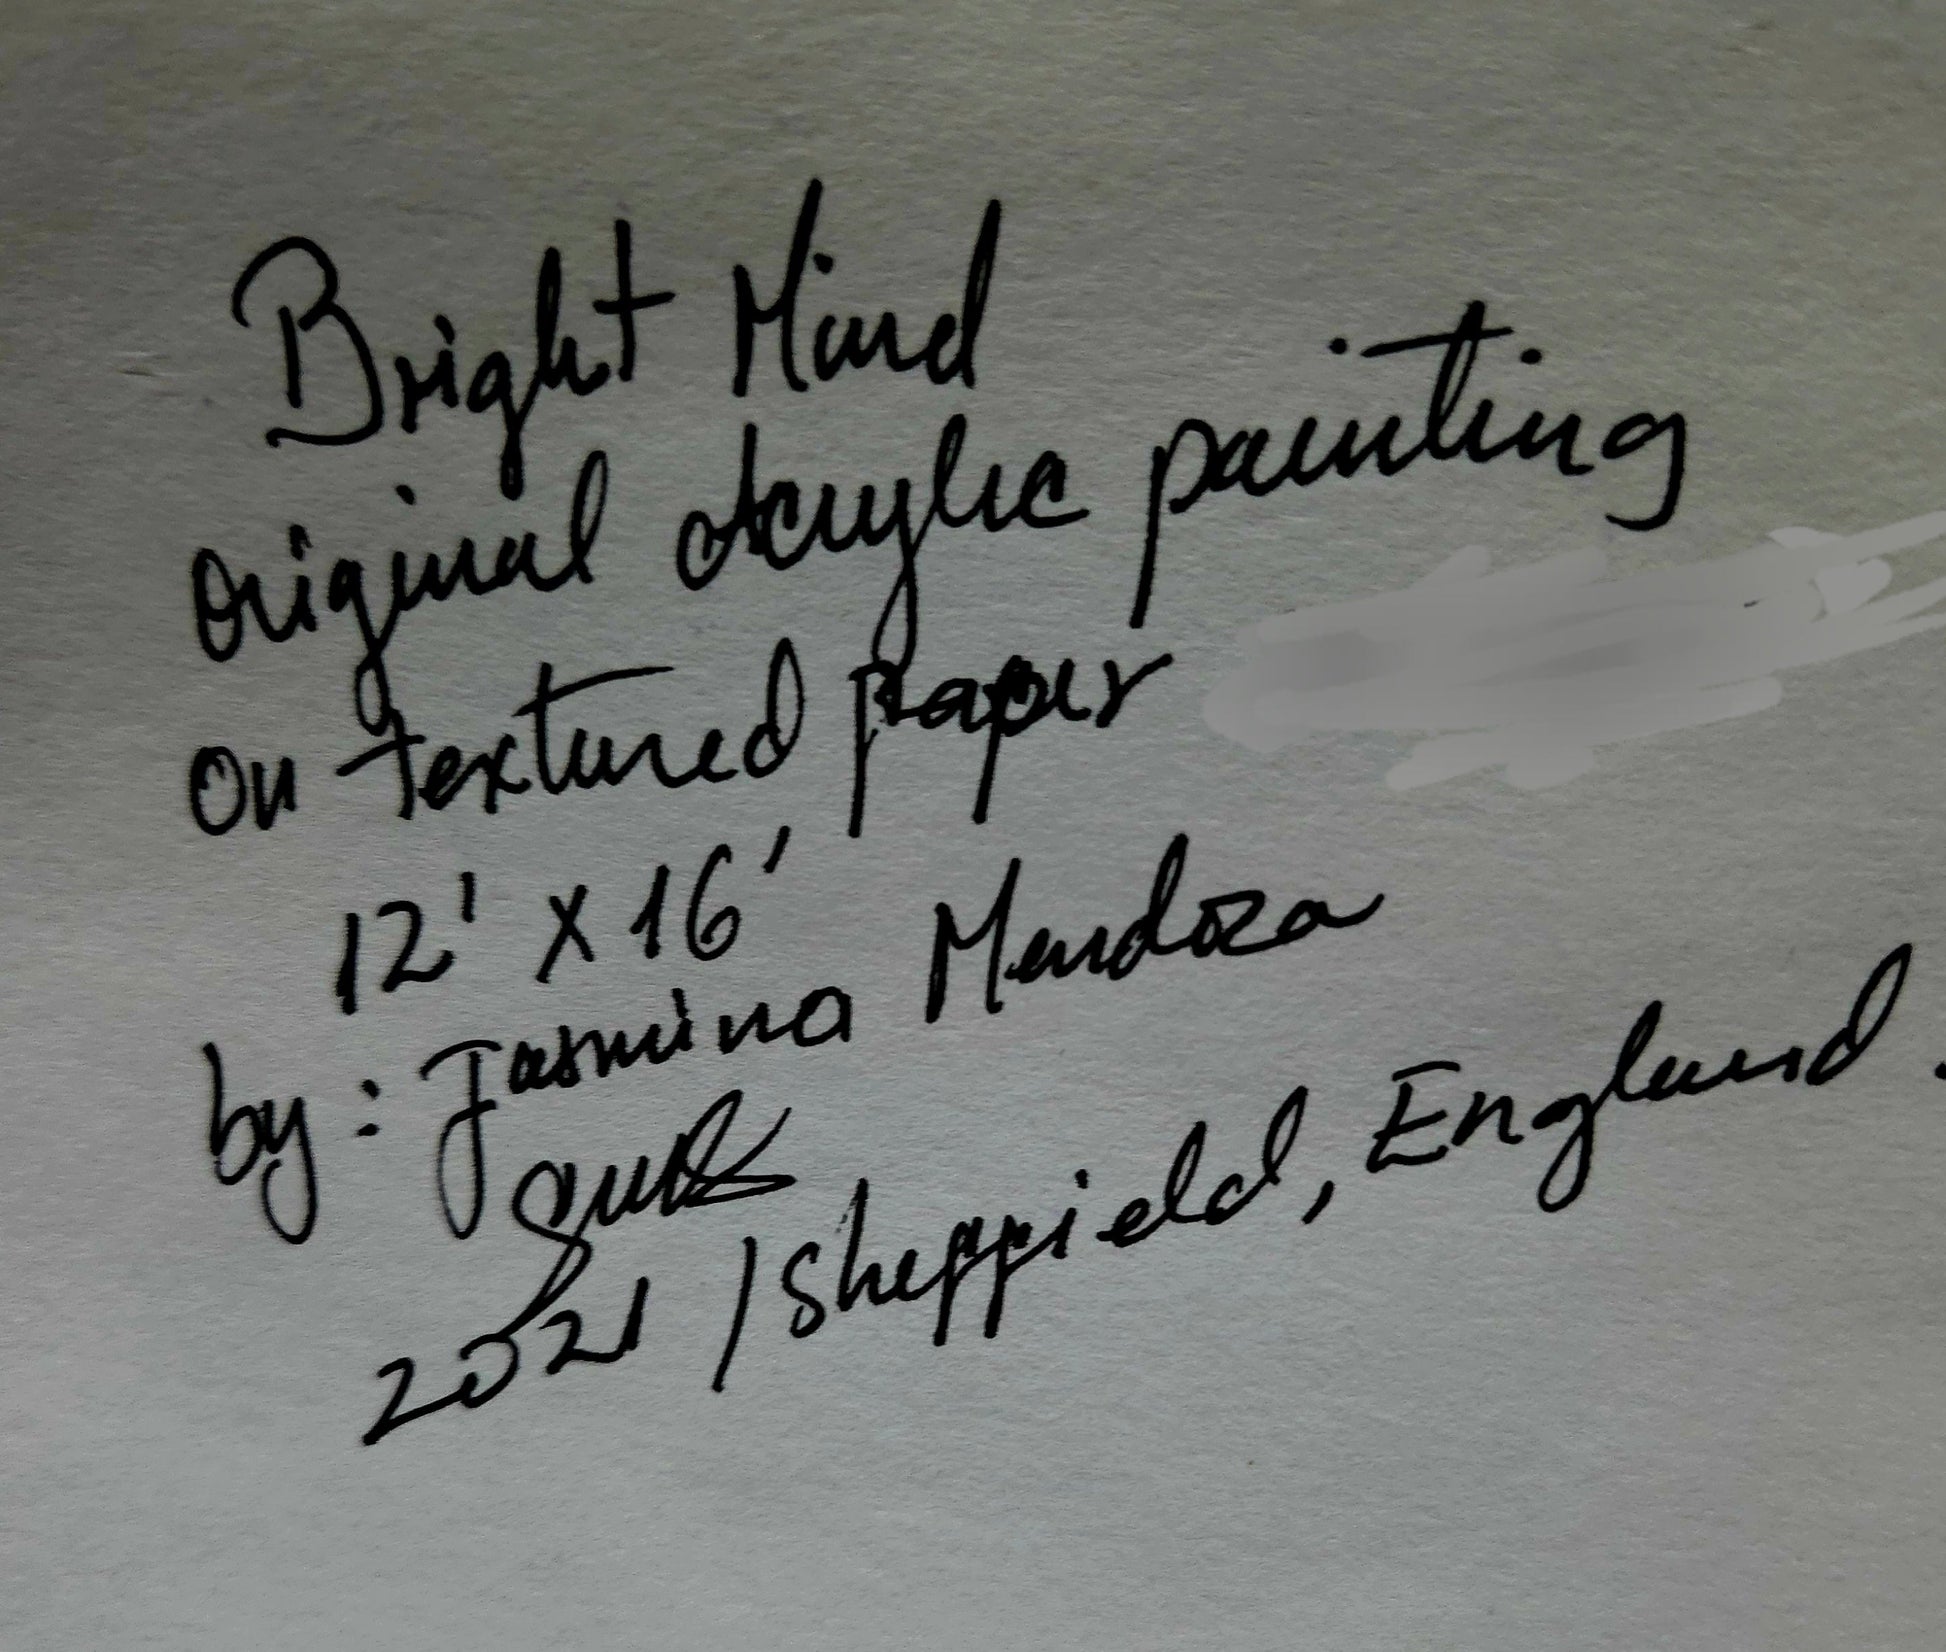 Bright Mind
original Acrylic painting
on textured paper
12' x 16'
by: Jasmina Mendoza
2021 / Sheffield, England.